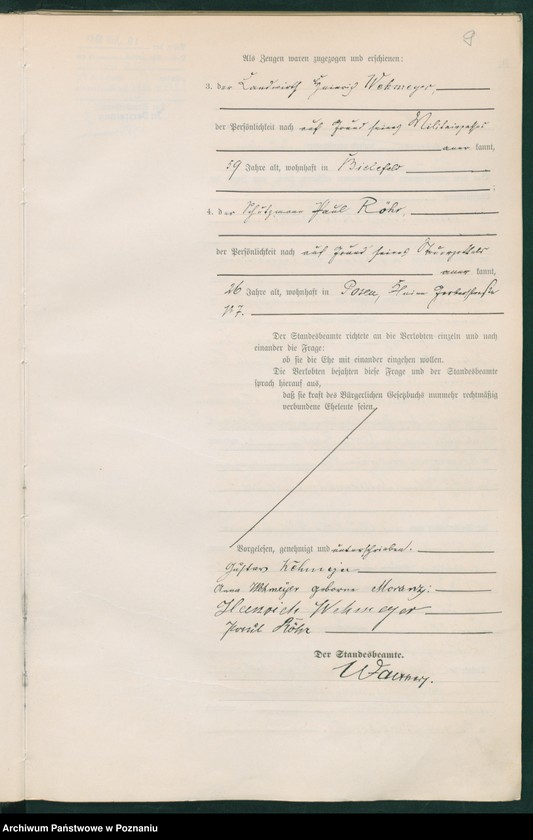 9
Als Zeugen waren zugezogen und erschienen:
3. der Landwirth Heinrich Wehmeyer
der Persönlichkeit nach auf Grund seines Militairpasses
aner kannt,
59 Jahre alt, wohnhaft in Bielefeld
;
4. der Schutzmann Paul Röhr
der Persönlichkeit nach auf Grund seines
aner kannt,
26 Jahre alt, wohnhaft in Posen, Kleine Gerberstraße
№ 7.
Der Standesbeamte richtete an die Verlobten einzeln und nach
einander die Frage:
ob sie die Ehe mit einander eingehen wollen.
Die Verlobten bejahten diese Frage und der Standesbeamte
sprach hierauf aus,
daß sie kraft des Bürgerlichen Gesetzbuchs nunmehr rechtmäßig
verbundene Eheleute seien.
Vorgelesen, genehmigt und unterschrieben.
Gustav
Anna Wehmeyer geborne
Heinrich Wehmeyer
Paul Röhr
Der Standesbeamte.
Archiwum Państwowe w Poznaniu